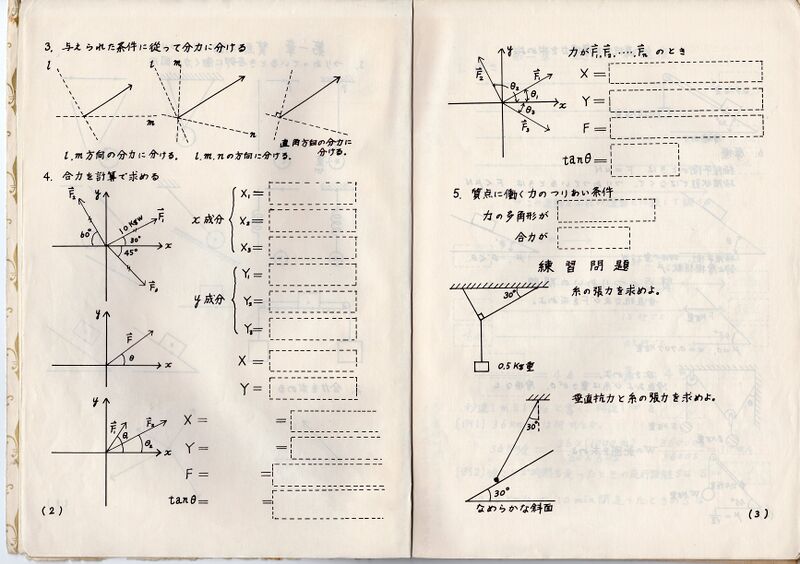 3. 与えられた条件に従って分力に分ける
l
m
l
m
n
l.m方向の分力に分ける。
l.m.nの方向に分ける。
直角方向の分力に
分ける。
4. 合力を計算で求める
y
F₂
10 Kgw
F₁
60°
30°
45°
x
F₃
x 成分
X₁=
X₂=
X₃=
y 成分
Y₁=
Y₂=
Y₃=
y
F
θ
x
X =
Y =
y
F₁
F₂
θ₁
θ₂
x
X = =
Y = =
F = =
tanθ= =
(2)
y
F₂
F₁
θ₂
θ₁
θ₃
x
F₃
力がF₁,F₂,....,Fₙ のとき
X =
Y =
F =
tanθ=
5. 質点に働く力のつりあい条件
力の多角形が
合力が
練習問題
30°
糸の張力を求めよ。
0.5 Kg重
垂直抗力と糸の張力を求めよ。
30°
30°
なめらかな斜面
(3)